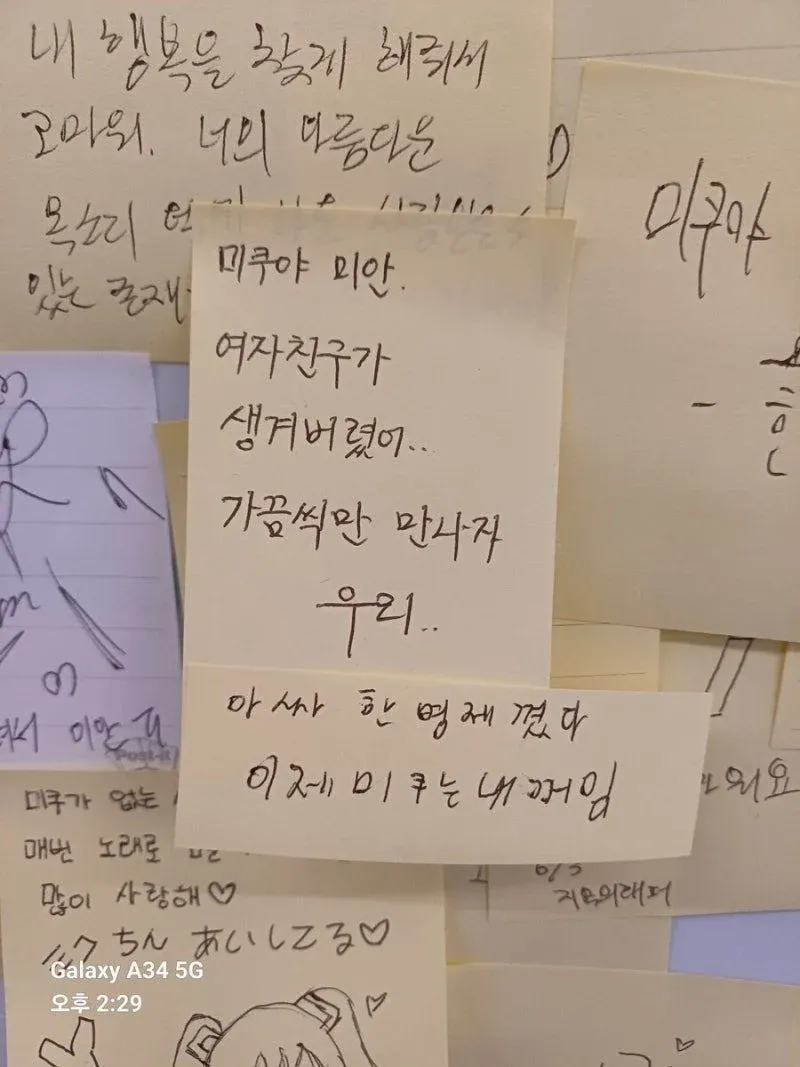 내 행복을 찾게 해줘서
고마워. 너의 아름다운
목소리
있는 존재
미쿠야
미쿠야 미안.
여자친구가
생겨버렸어..
가끔씩만 만나자
우리..
아싸 한 명 제꼈다
이제 미쿠는 내꺼임
미쿠가 없는
매번 노래로
많이 사랑해♡
ミクちん あいしてる♡
Galaxy A34 5G
오후 2:29